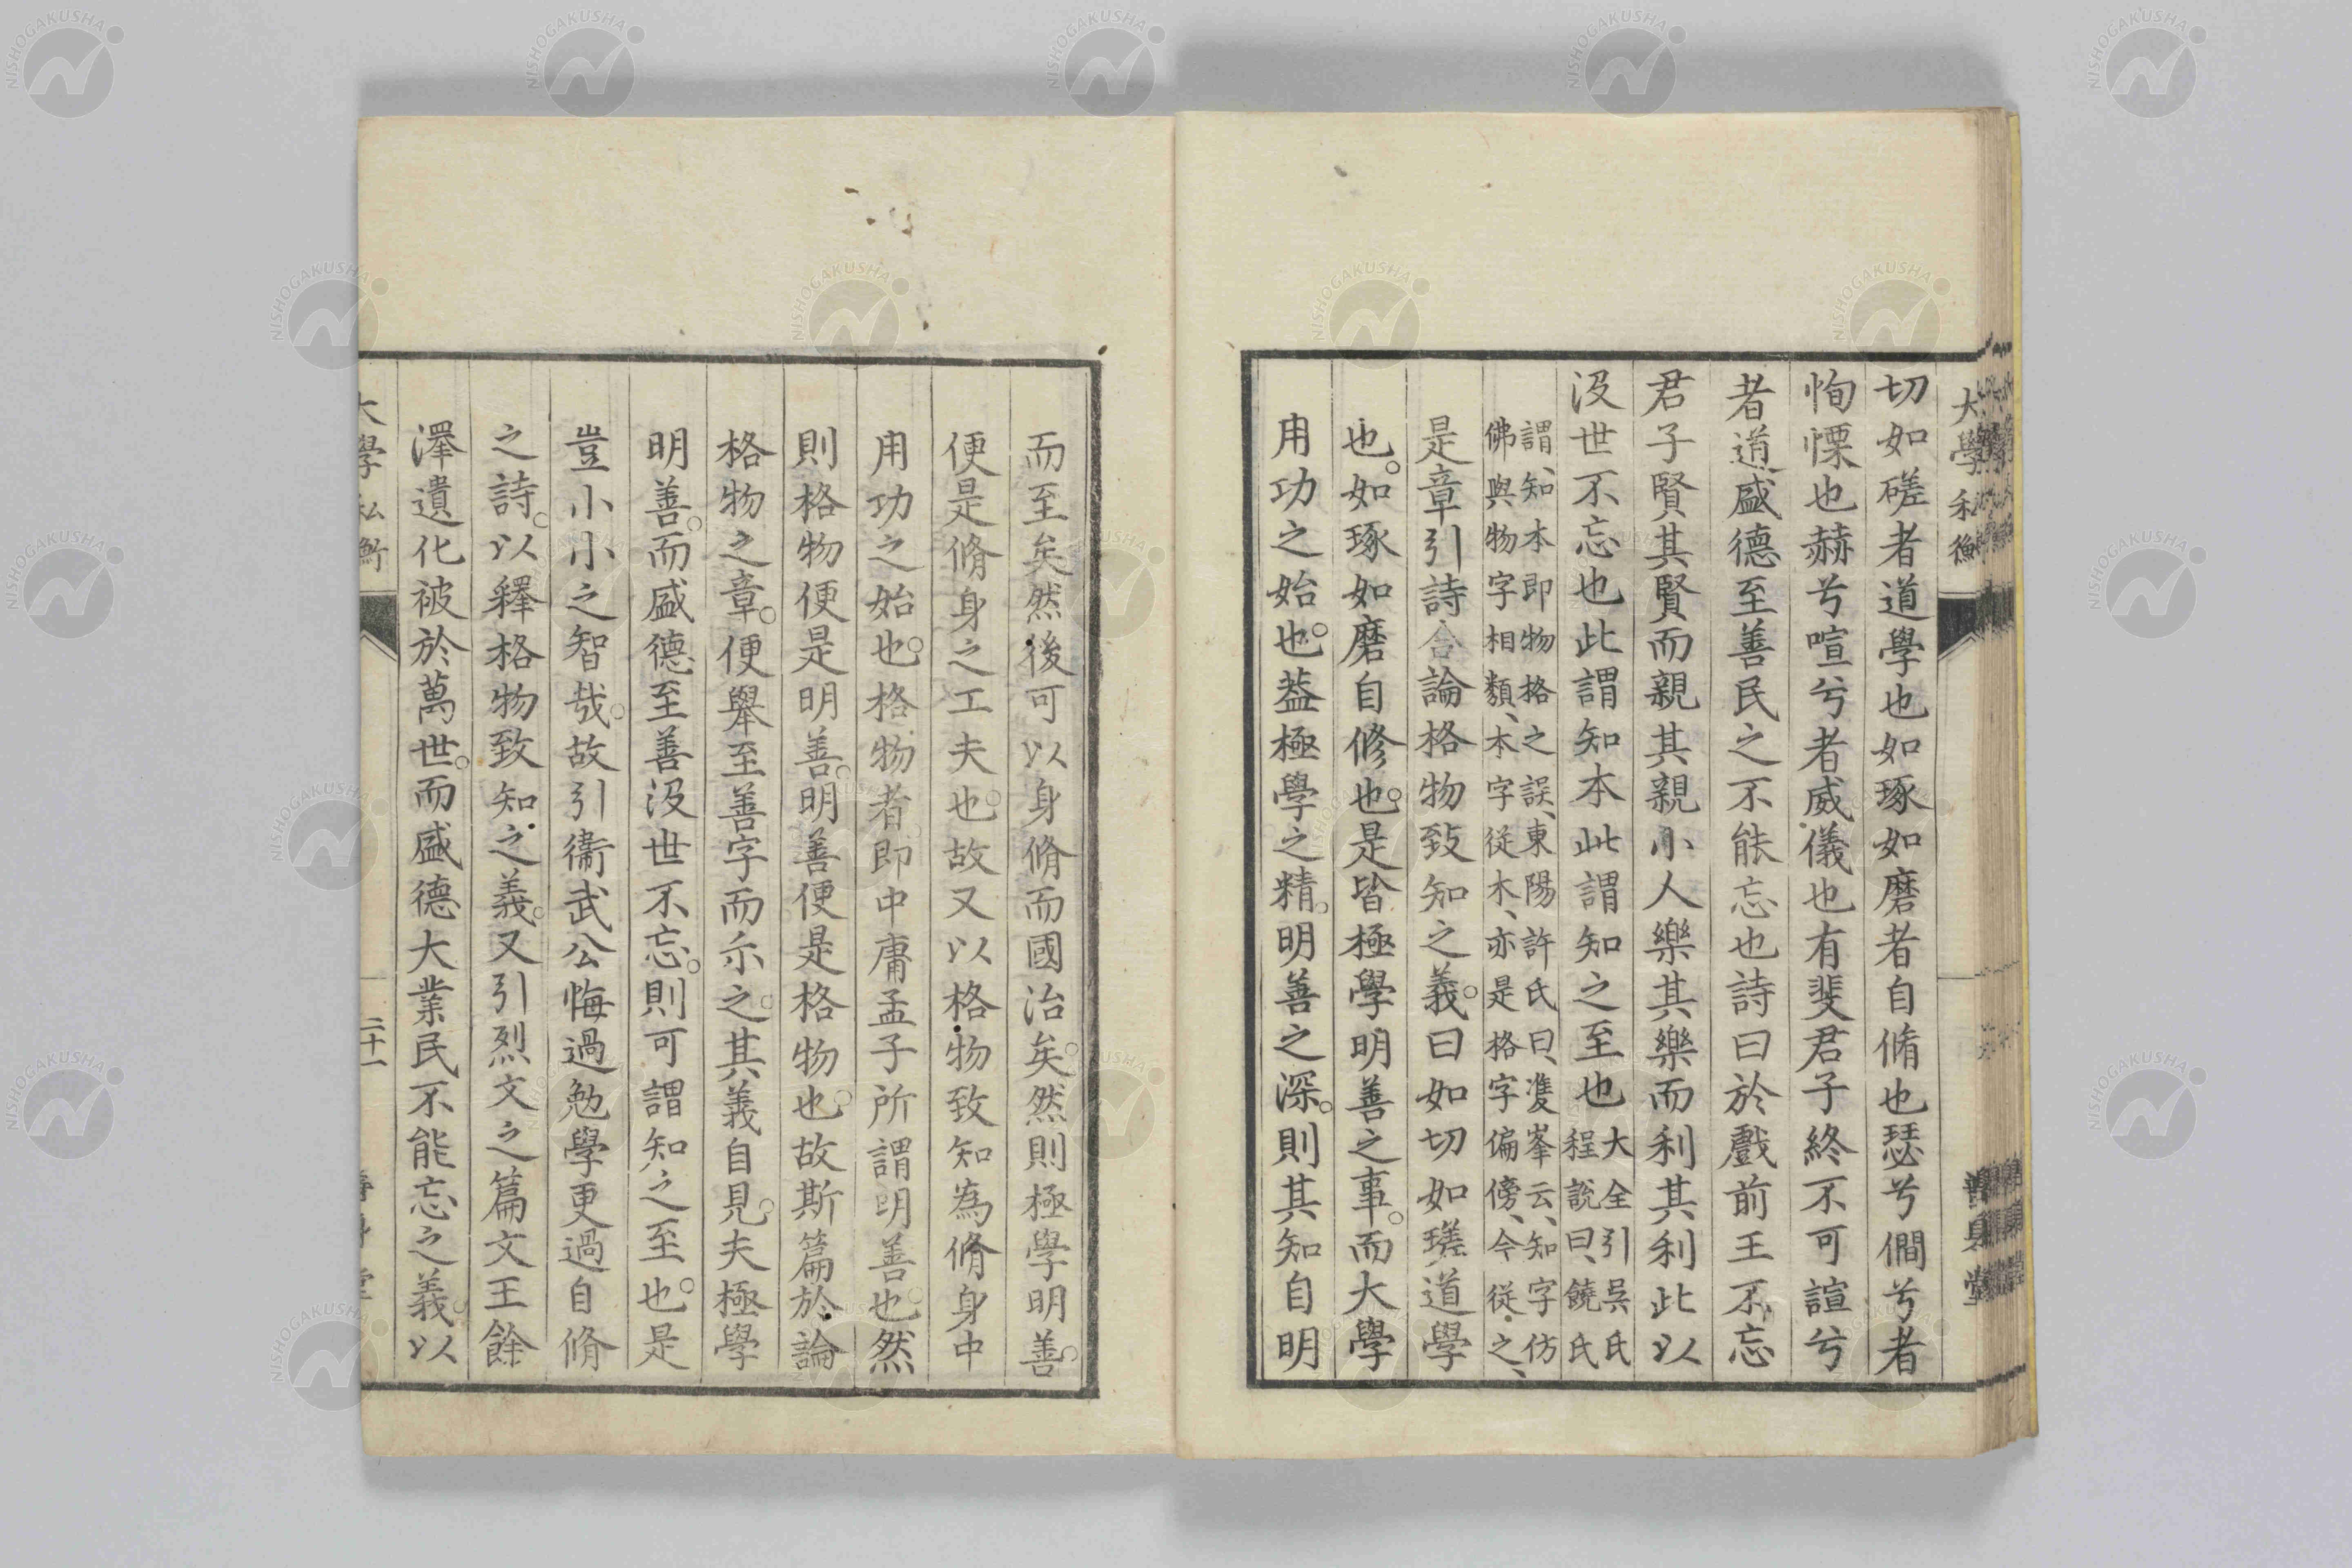 切如磋者道學也如琢如磨者自脩也瑟兮僩兮者
恂慄也赫兮喧兮者威儀也有斐君子終不可諠兮
者道盛德至善民之不能忘也詩曰於戲前王不忘
君子賢其賢而親其親小人樂其樂而利其利此以
沒世不忘也此謂知本此謂知之至也大全引吳氏
程說曰、饒氏
謂、知本即物格之誤、東陽許氏曰、雙峯云、知字仿
佛與物字相類、本字從木、亦是格字偏傍、今從之、
是章引詩合論格物致知之義。曰如切如瑳道學
也。如琢如磨自修也。是皆極學明善之事。而大學
用功之始也。葢極學之精。明善之深。則其知自明
而至矣然後可以身脩而國治矣。然則極學明善。
便是脩身之工夫也。故又以格物致知為脩身中
用功之始也。格物者即中庸孟子所謂明善也。然
則格物便是明善。明善便是格物也。故斯篇於論
格物之章。便舉至善字而示之。其義自見。夫極學
明善。而盛德至善沒世不忘。則可謂知之至也。是
豈小小之智哉。故引衞武公悔過勉學更過自脩
之詩。以釋格物致知之義。又引烈文之篇文王餘
澤遺化被於萬世。而盛德大業民不能忘之義。以
大學 私衡
二十一